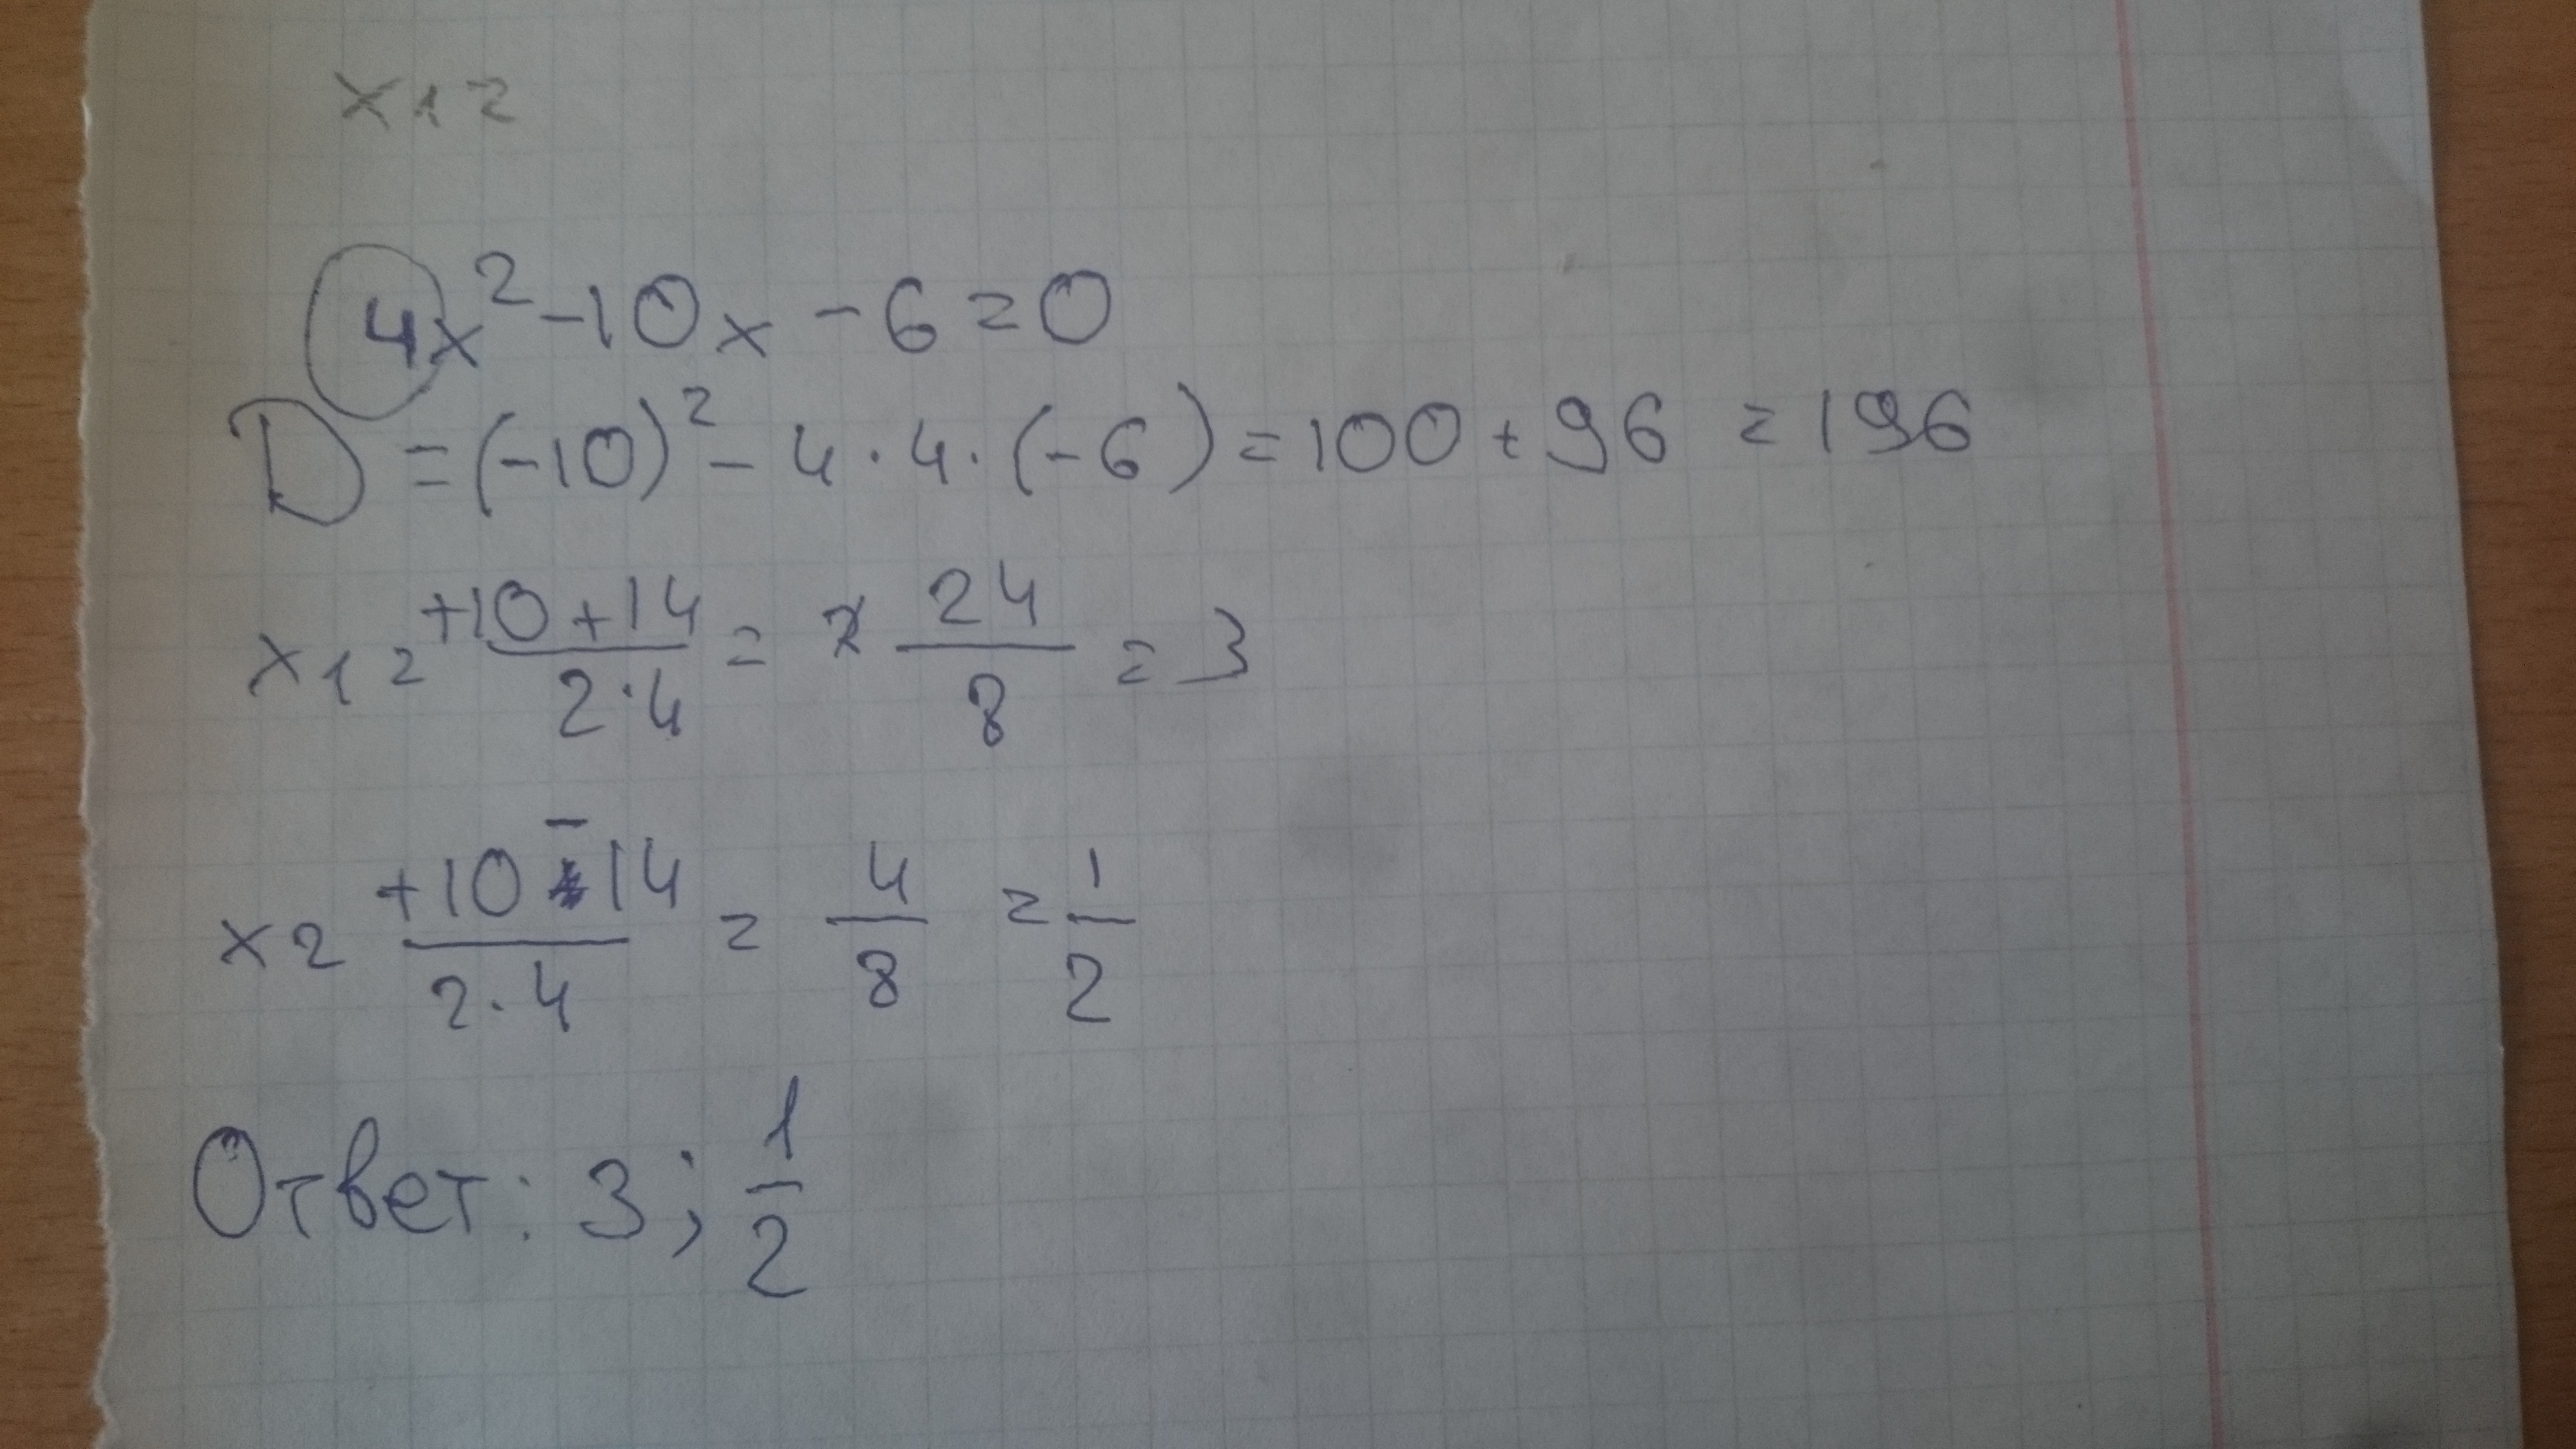 x1 =
4x² - 10x - 6 = 0
D = (-10)² - 4 · 4 · (-6) = 100 + 96 = 196
x1 = +10 + 14 / 2 · 4 = 24 / 8 = 3
x2 +10 - 14 / 2 · 4 = 4 / 8 = 1 / 2
Ответ: 3; 1/2